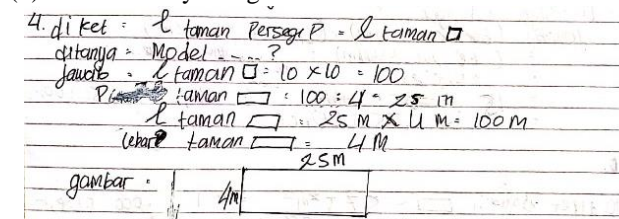 4. di ket : l taman Persegi P = l taman □
ditanya : Model ....?
Jawab : l taman □ : 10 x 10 = 100
taman ▭ : 100 : 4 = 25 m
l taman ▭ : 25 m x 4 m = 100 m
lebar taman ▭ = 4 M
25 m
gambar :
4m